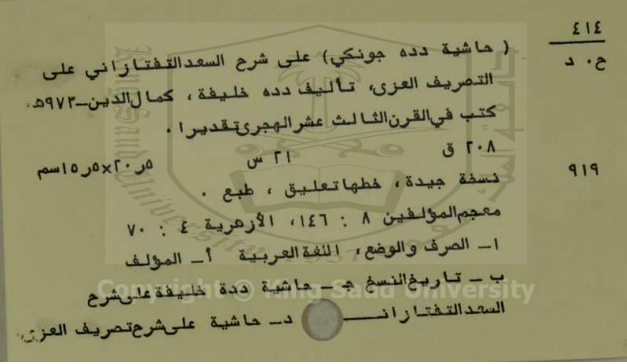 ٤١٤
ح٠ د
( حاشية دده جونكي) على شرح السعدالتفتازاني على
التصريف العزى، تأليف دده خليفة ، كمال الدين–٩٧٣هـ
كتب في القرن الثالث عشر الهجرى تقديرا ٠
٢٠٨ ق ٢١ س ٥ر٢٠×٥ر١٥سم
٩١٩
نسخة جيدة ، خطها تعليق ، طبع .
معجم المؤلفين ٨ : ١٤٦، الأزهرية ٤ : ٧٠
١– الصرف والوضع، اللغة العربية أ– المؤلف
ب – تاريخ النسخ ج– حاشية ددة خليفة على شرح
السعد التفتازانــــي د– حاشية على شرح تصريف العزى٠
Copyright © King Saud University